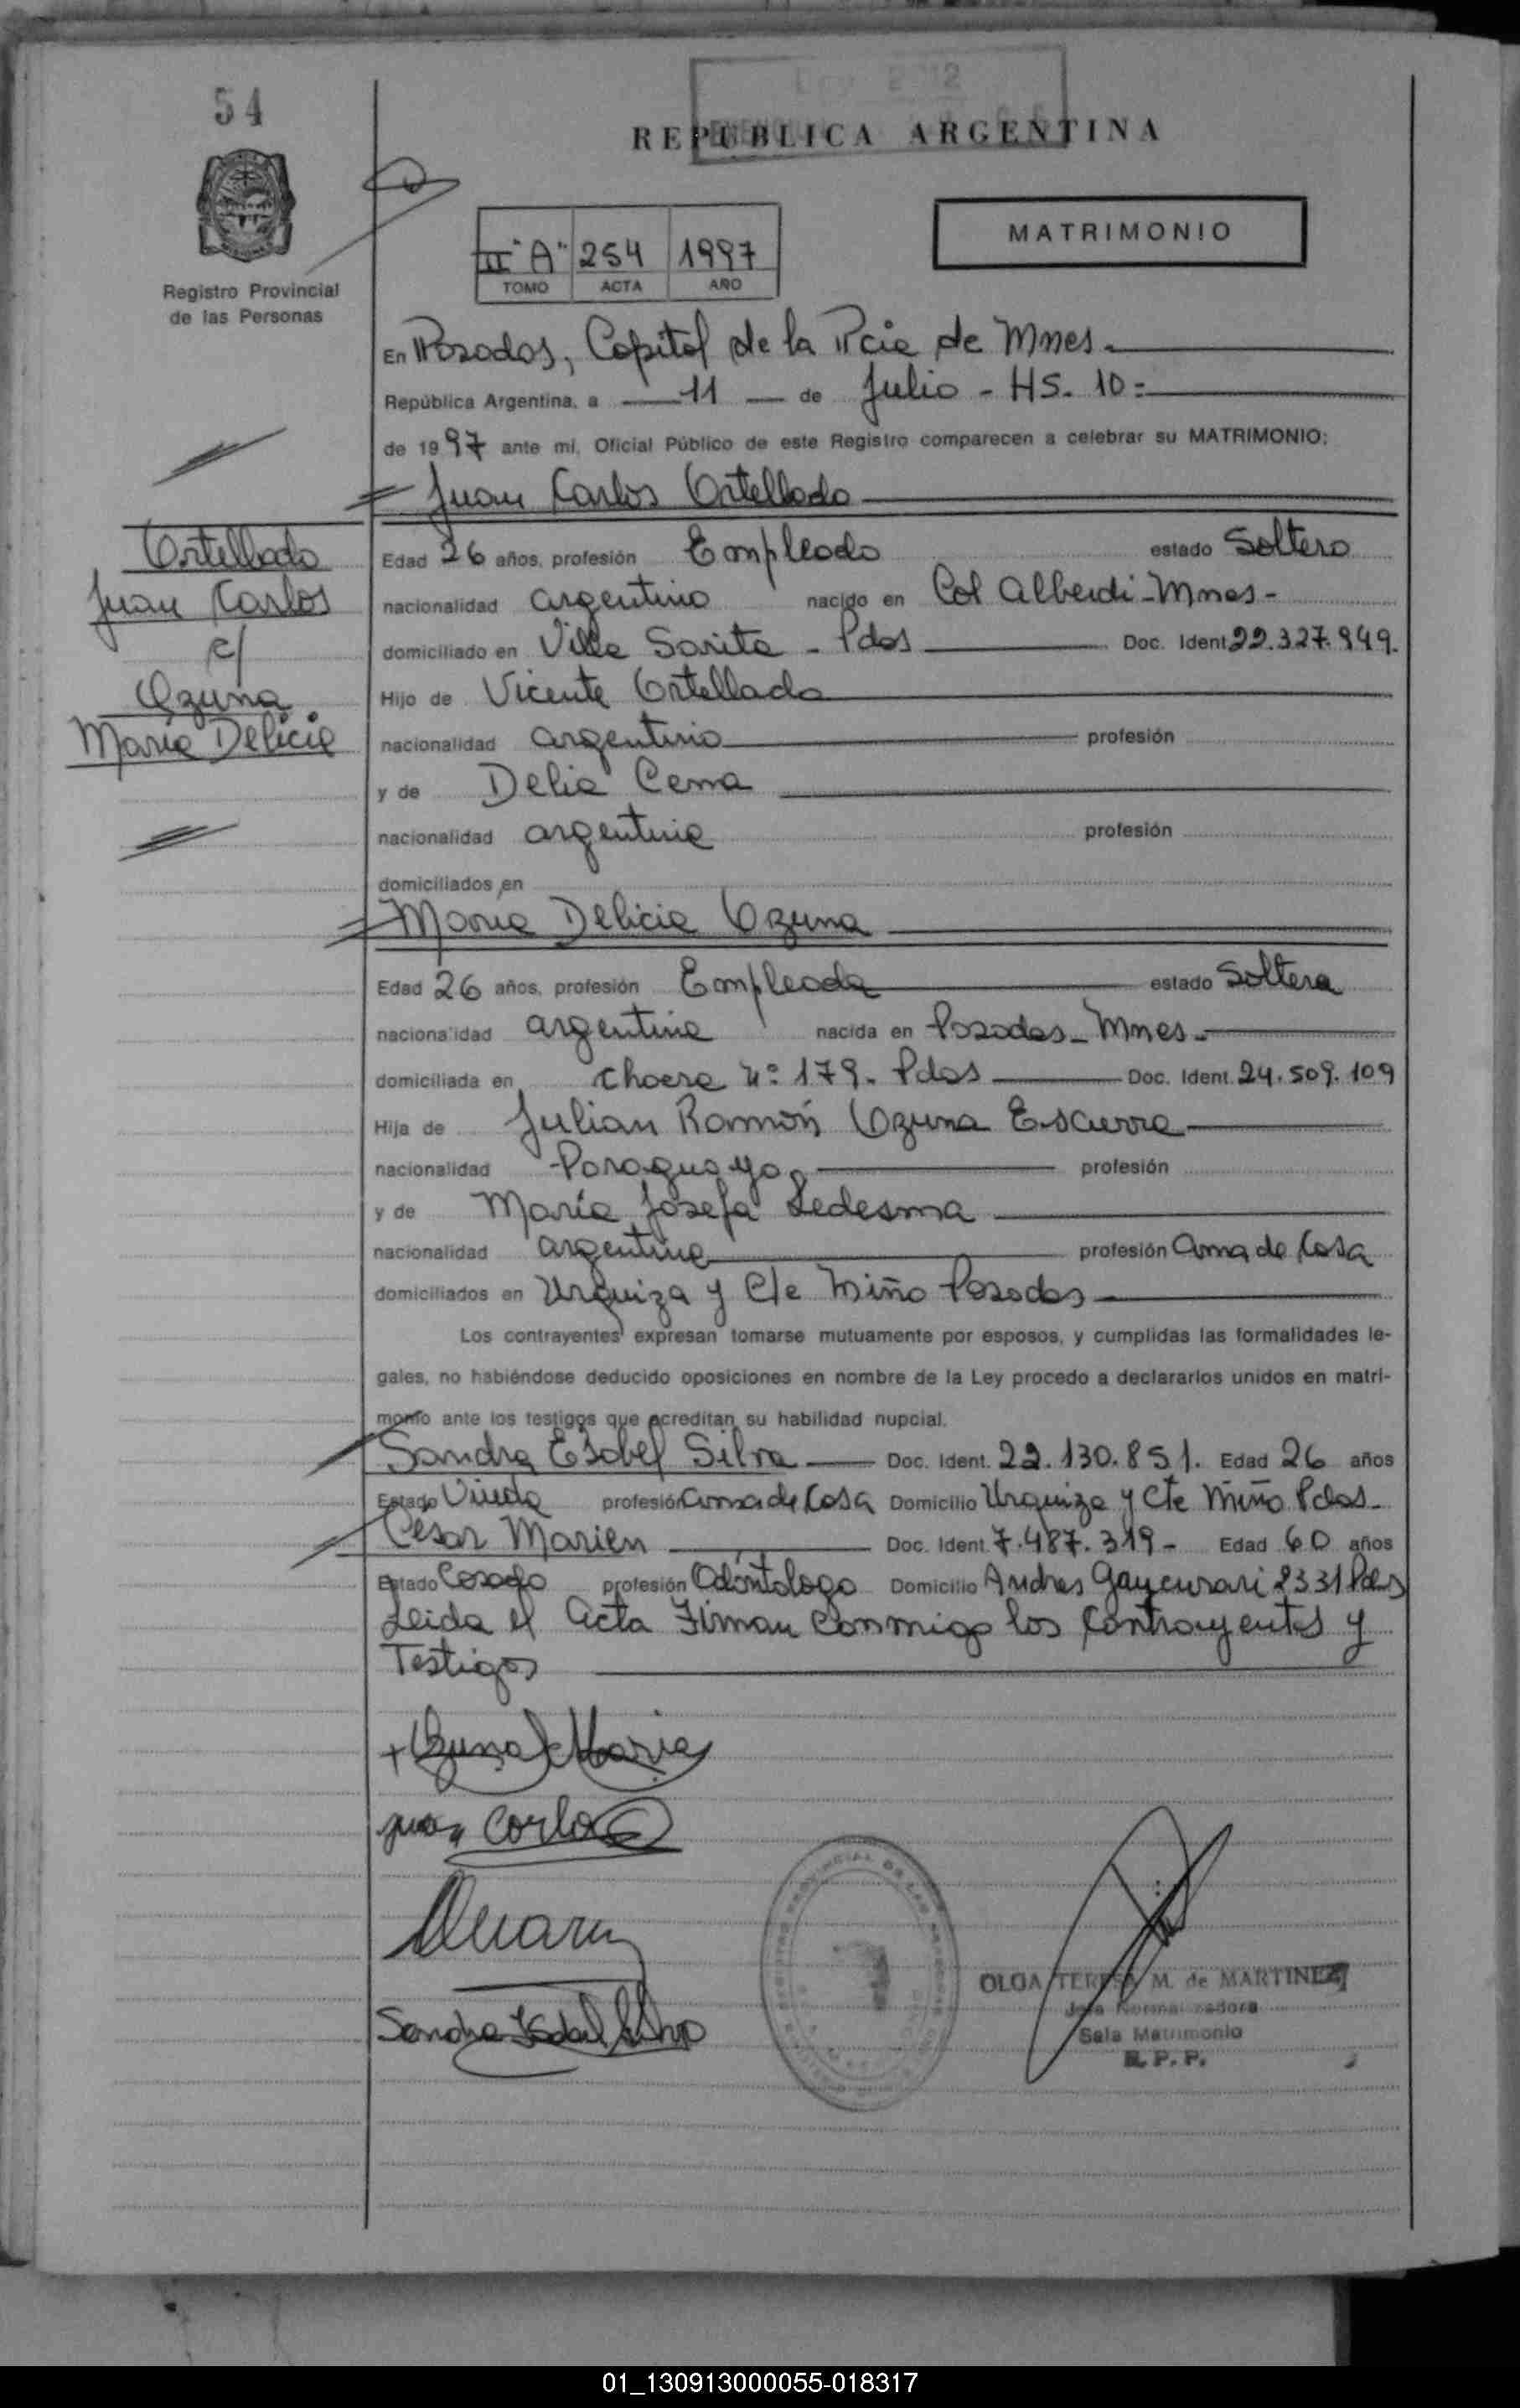 54
REPUBLICA ARGENTINA
Registro Provincial
de las Personas
MATRIMONIO
II "A" 254 1997
TOMO ACTA AÑO
En Posadas, Capital de la Pcia de Mnes.
República Argentina, a 11 de Julio - HS. 10:
de 1997 ante mi, Oficial Público de este Registro comparecen a celebrar su MATRIMONIO:
Juan Carlos Ortellado
Ortellado
Juan Carlos
c/
Ozuna
María Delicia
Edad 26 años, profesión Empleado estado Soltero
nacionalidad argentino nacido en Col Alberdi - Mnes -
domiciliado en Villa Sarita - Pdas Doc. Ident. 22.327.949.
Hijo de Vicente Ortellado
nacionalidad argentino profesión
y de Delia Cerna
nacionalidad argentina profesión
domiciliados en
María Delicia Ozuna
Edad 26 años, profesión Empleada estado Soltera
nacionalidad argentina nacida en Posadas - Mnes -
domiciliada en Nº 179 - Pdas Doc. Ident. 24.509.109
Hija de Julian Ramón Ozuna
nacionalidad Paraguayo profesión
y de María Josefa Ledesma
nacionalidad argentina profesión ama de Casa
domiciliados en Urquiza y Cte Miño Posadas
Los contrayentes expresan tomarse mutuamente por esposos, y cumplidas las formalidades le-
gales, no habiéndose deducido oposiciones en nombre de la Ley procedo a declararlos unidos en matri-
monio ante los testigos que acreditan su habilidad nupcial.
Sandra Esabel Silva Doc. Ident. 22.130.851. Edad 26 años
Estado Viuda profesión ama de Casa Domicilio Urquiza y Cte Miño Pdas -
Cesar Marien Doc. Ident. 7.487.319 - Edad 60 años
Estado Casado profesión Odóntologo Domicilio Andres Gaycurari 2331 Pdas
Leida el Acta Firman Conmigo los Contrayentes y
Testigos
+ Ozuna Maria
Juan Carlos
Sandra Isabel Silva
OLGA TERESA M. de MARTINEZ
Sala Matrimonio
R. P. P.
01_130913000055-018317